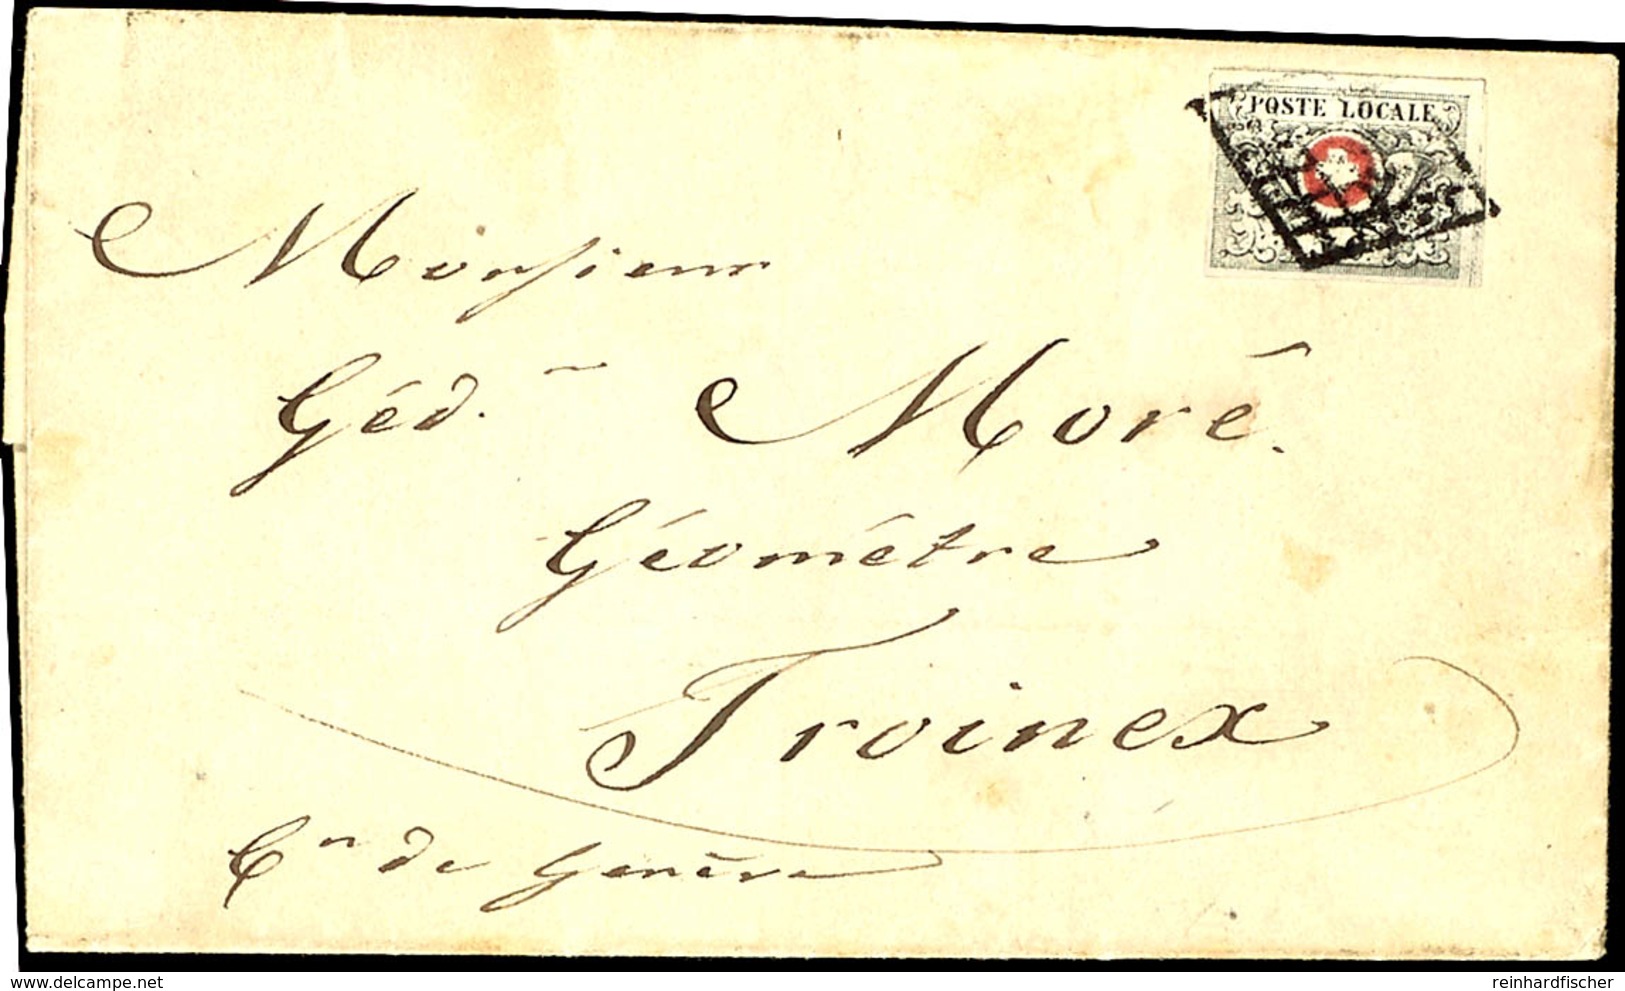 POSTE LOCALE
Monsieur
Géd.n Moré.
Géomètre
Troinex
Cn de Genève
delcampe.net
reinhardfischer